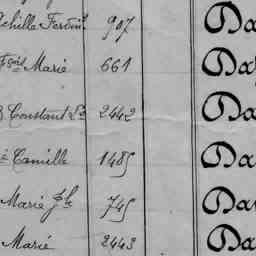 Achille Ferdind 907 Da
Fçois Marie 661 Da
Constant Ls 2442 Da
Camille 1485 Da
Marie Jh 745 Da
Marie 2443 Da